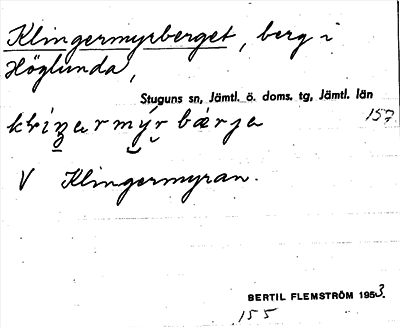 Klingermyrberget, berg i
Höglunda,
Stuguns sn, Jämtl. ö. doms. tg, Jämtl. län
157
V Klingermyran.
BERTIL FLEMSTRÖM 1953.
155